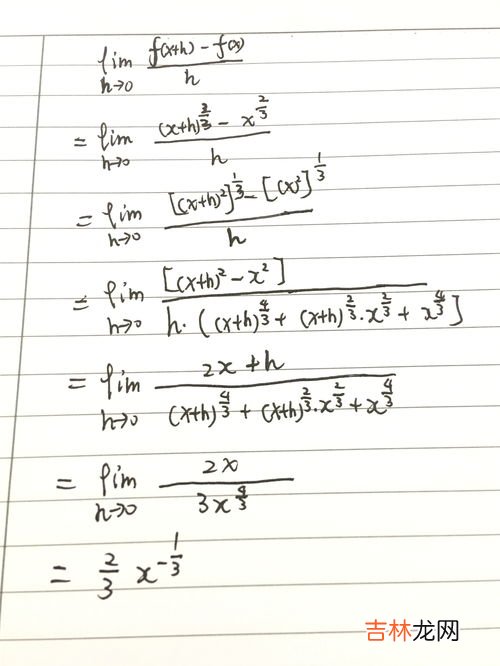 lim h→0 f(x+h) - f(x) / h
= lim h→0 (x+h)^(2/3) - x^(2/3) / h
= lim h→0 [(x+h)²]^(1/3) - [(x²)]^(1/3) / h
= lim h→0 [(x+h)² - x²] / h·((x+h)^(4/3) + (x+h)^(2/3)·x^(2/3) + x^(4/3)]
= lim h→0 2x+h / (x+h)^(4/3) + (x+h)^(2/3)·x^(2/3) + x^(4/3)
= lim h→0 2x / 3x^(4/3)
= 2/3 x^(-1/3)
吉林龙网